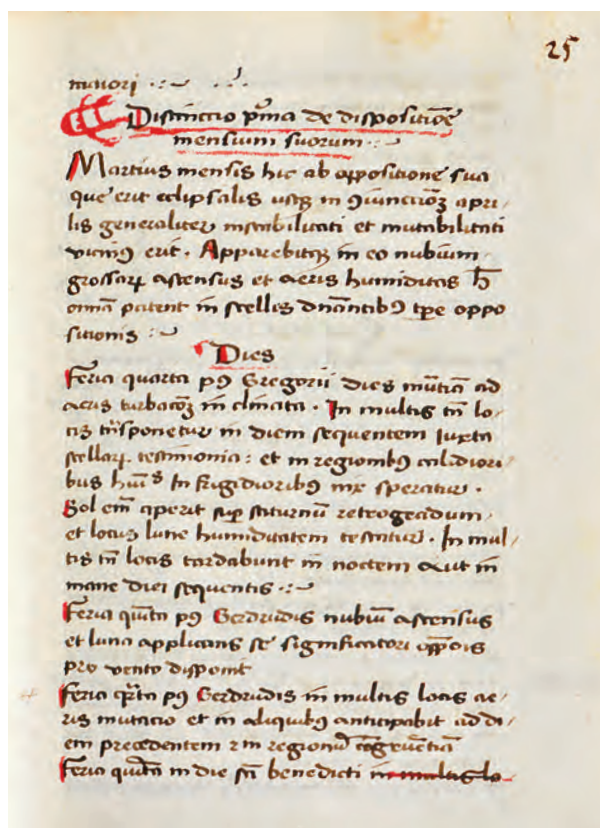 25
maiori
Distinctio prima de dispositione
mensium suorum
Martius mensis hic ab oppositione sua
que erit eclipsalis usque in coniunctionem apri
lis generaliter instabilitati et mutabilitati
vicinus erit. Apparebitque in eo nubium
grossarum ascensus et aeris humiditas hec
omnia patent in stellis dominantibus tempore oppo
sitionis
Dies
Feria quarta post Gregorii dies initiam ad
aeris turbacionem inclinata. In multis tamen lo
cis transponetur in diem sequentem iuxta
stellarum testimonia: et in regionibus calidiori
bus humidis In frigidioribus nix speratur.
Sol enim aperit super saturnum retrogradum
et locus lune humiditatem testatur. In mul
tis tamen locis tardabunt in noctem aut in
mane diei sequentis
Feria quinta post Gerdrudis nubium ascensus
et luna applicans se significatori oppositionis
pro vento disponit
Feria quarta post Gerdrudis in multis locis ae
ris mutacio et in aliquibus anticipabit ad di
em precedentem in regionum congruentiam
Feria quinta in die sancti benedicti in multis lo